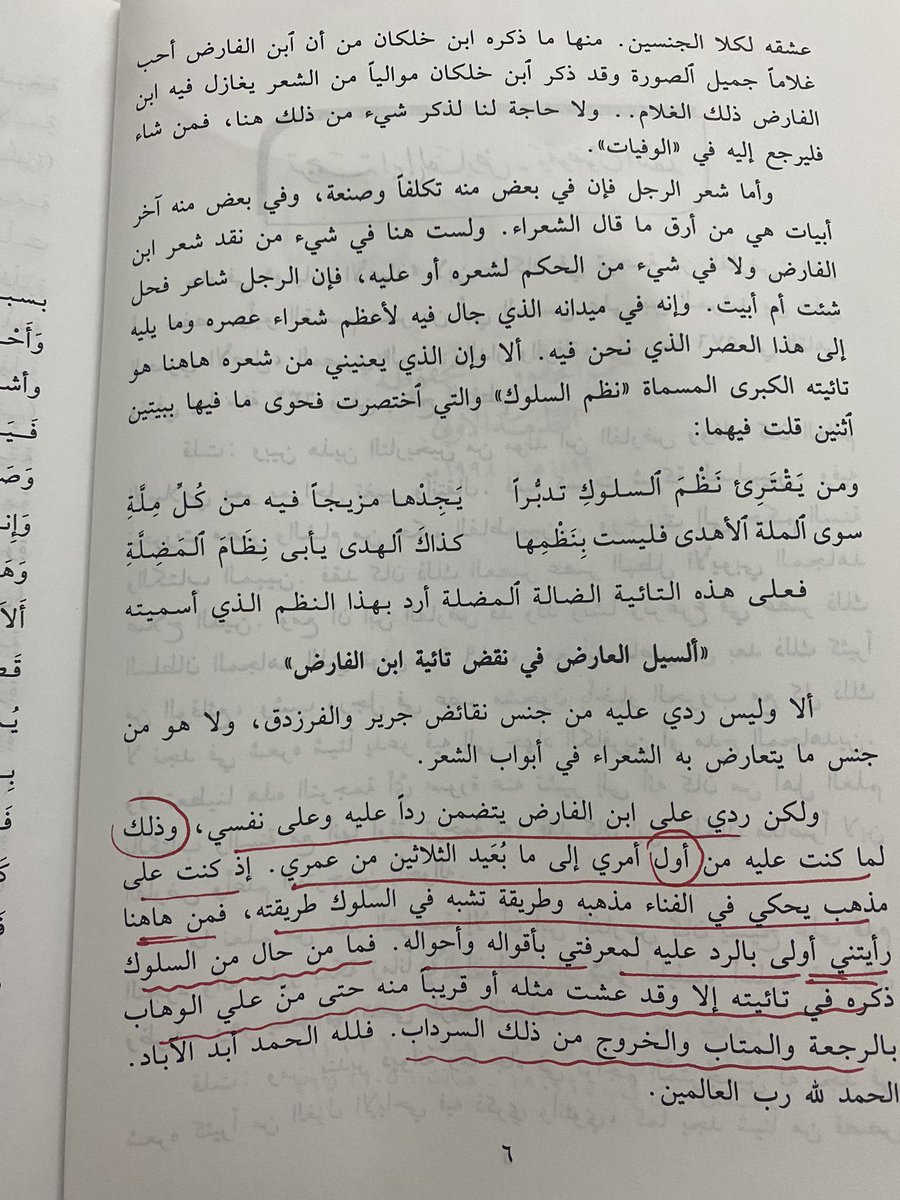 عشقه لكلا الجنسين. منها ما ذكره ابن خلكان من أن ٱبن الفارض أحب
غلاماً جميل ٱلصورة وقد ذكر ٱبن خلكان موالياً من الشعر يغازل فيه ابن
الفارض ذلك الغلام.. ولا حاجة لنا لذكر شيء من ذلك هنا، فمن شاء
فليرجع إليه في «الوفيات».
وأما شعر الرجل فإن في بعض منه تكلفاً وصنعة، وفي بعض منه آخر
أبيات هي من أرق ما قال الشعراء. ولست هنا في شيء من نقد شعر ابن
الفارض ولا في شيء من الحكم لشعره أو عليه، فإن الرجل شاعر فحل
شئت أم أبيت. وإنه في ميدانه الذي جال فيه لأعظم شعراء عصره وما يليه
إلى هذا العصر الذي نحن فيه. ألا وإن الذي يعنيني من شعره هاهنا هو
تائيته الكبرى المسماة «نظم السلوك» والتي ٱختصرت فحوى ما فيها ببيتين
ٱثنين قلت فيهما:
ومن يَقْتَرِئ نَظْمَ ٱلسلوكِ تدبُّراً يَجِدْها مزيجاً فيه من كُلِّ مِلَّةِ
سوى ٱلملة ٱلأهدى فليست بِنَظْمِها كذاكَ ٱلهدى يأبى نِظَامَ ٱلمَضِلَّةِ
فعلى هذه التائية الضالة ٱلمضلة أرد بهذا النظم الذي أسميته
«ألسيل العارض في نقض تائية ابن الفارض»
ألا وليس ردي عليه من جنس نقائض جرير والفرزدق، ولا هو من
جنس ما يتعارض به الشعراء في أبواب الشعر.
ولكن ردي على ابن الفارض يتضمن رداً عليه وعلى نفسي، وذلك
لما كنت عليه من أول أمري إلى ما بُعَيد الثلاثين من عمري. إذ كنت على
مذهب يحكي في الفناء مذهبه وطريقة تشبه في السلوك طريقته، فمن هاهنا
رأيتني أولى بالرد عليه لمعرفتي بأقواله وأحواله. فما من حال من السلوك
ذكره في تائيته إلا وقد عشت مثله أو قريباً منه حتى منّ علي الوهاب
بالرجعة والمتاب والخروج من ذلك السرداب. فلله الحمد أبد الآباد.
الحمد لله رب العالمين.
٦